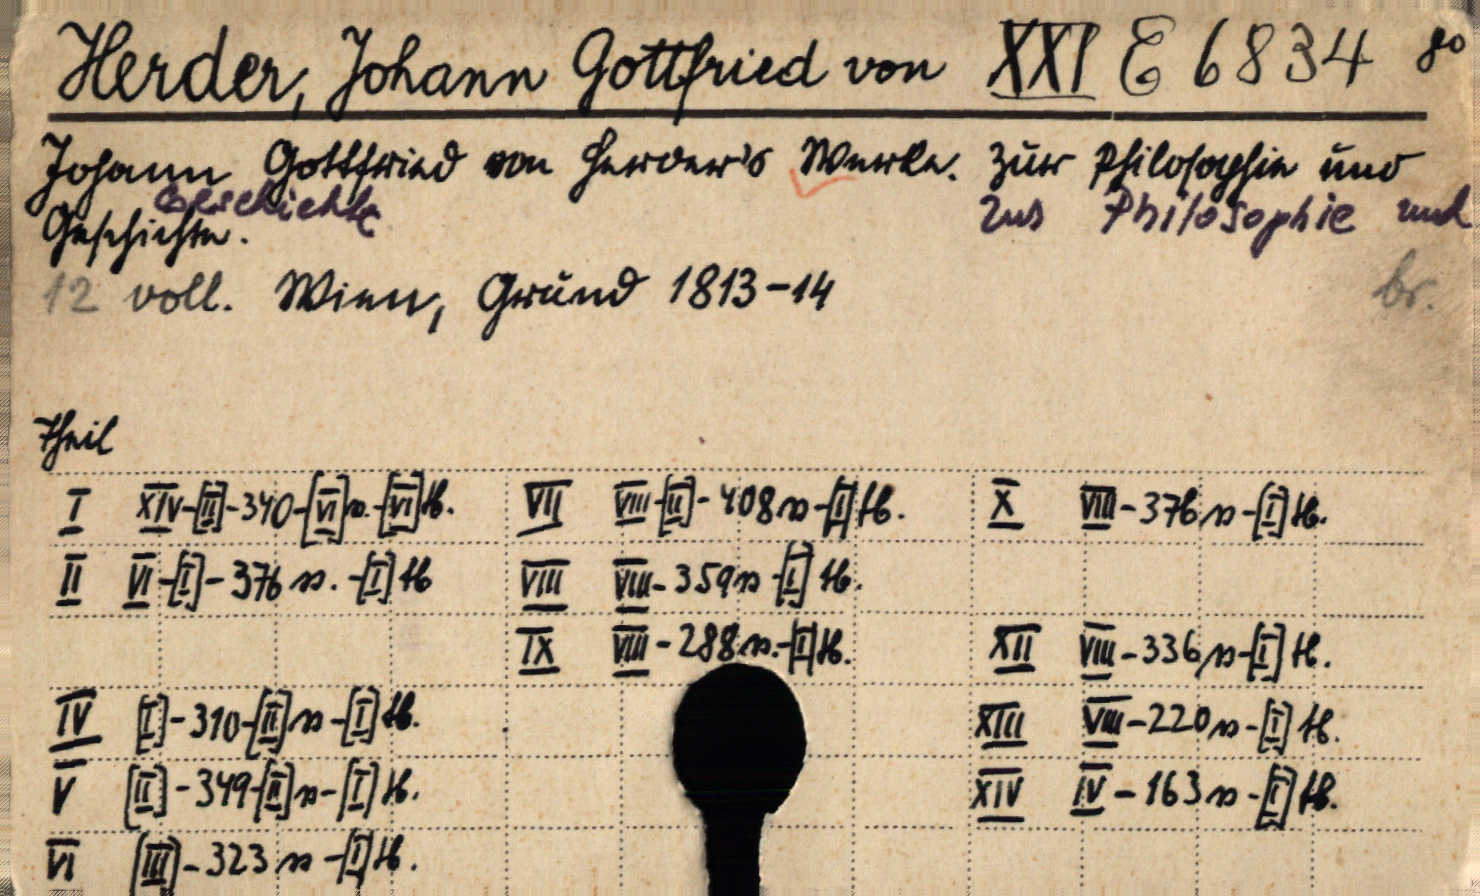 Herder, Johann Gottfried von XXI E 6834 8°
Johann Gottfried von Herder's Werke. Zur Philosophie und
Geschichte Zur Philosophie und
Geschichte.
12 voll. Wien, Gründ 1813-14 br.
Theil
I XIV-[II]-340-[VI] s.-[VI] tb. VII VIII-[II]-408 s-[I] tb. X VIII-376 s-[I] tb.
II VI-[I]-376 s.-[I] tb VIII VIII-359 s-[I] tb.
IX VIII-288 s.-[I] tb. XII VIII-336 s-[I] tb.
IV [I]-310-[II] s-[I] tb. XIII VIII-220 s-[I] tb.
V [II]-349-[II] s-[I] tb. XIV IV-163 s-[I] tb.
VI [III]-323 s-[I] tb.